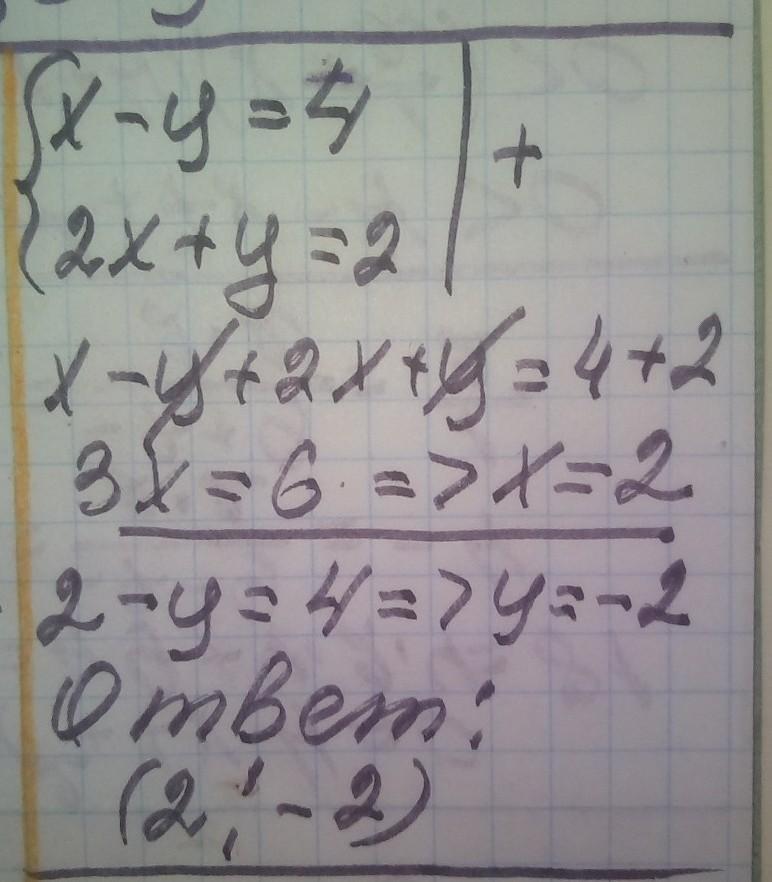 {x-y=4 | +
{2x+y=2
x-y+2x+y=4+2
3x=6 => x=2
2-y=4=>y=-2
Ответ:
(2;-2)